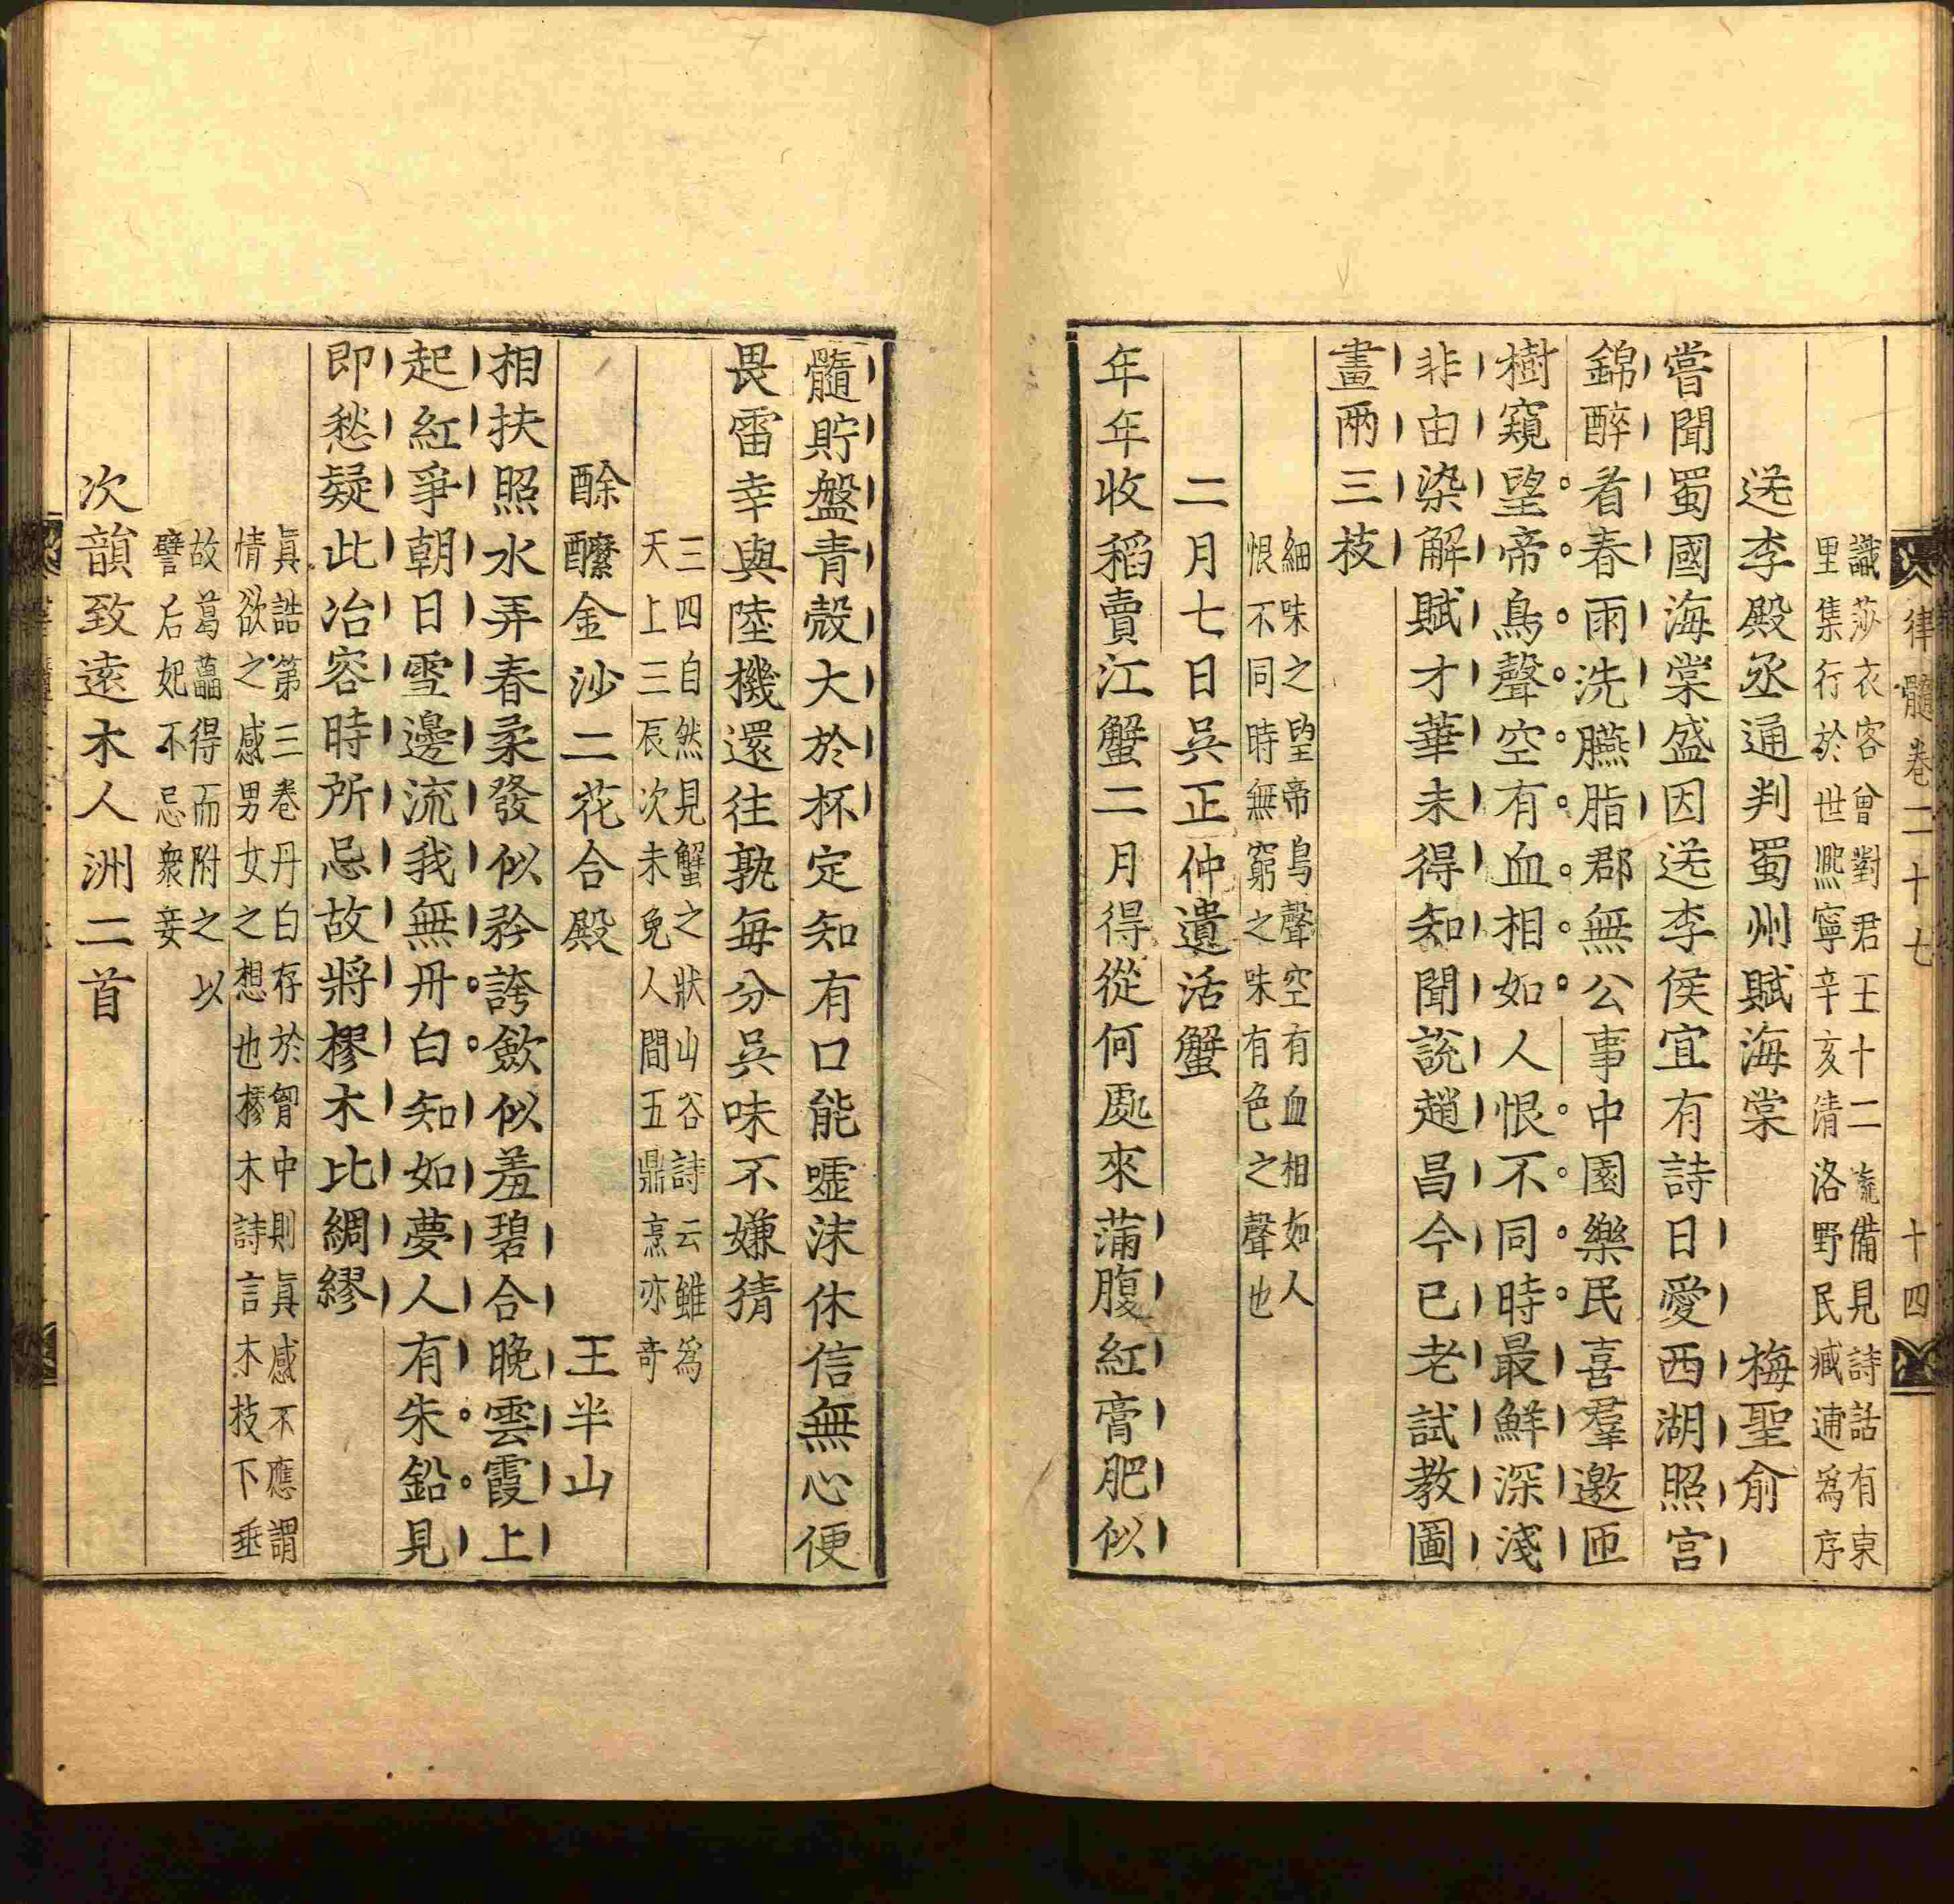 律髓卷二十七
十四
識莎衣容曾對君王十二旒備見詩話有東
里集行於世熈寧辛亥清洛野民臧逋爲序
送李殿丞通判蜀州賦海棠　梅聖俞
嘗聞蜀國海棠盛因送李侯宜有詩日愛西湖照宫
錦醉看春雨洗臙脂郡無公事中園樂民喜羣邀匝
樹窺望帝鳥聲空有血相如人恨不同時最鮮深淺
非由染解賦才華未得知聞説趙昌今已老試教圖
畫兩三枝
細味之望帝鳥聲空有血相如人
恨不同時無窮之味有色之聲也
二月七日吳正仲遺活蟹
年年收稻賣江蟹二月得從何處來蒲腹紅膏肥似
髓貯盤青殼大於杯定知有口能嘘沫休信無心便
畏雷幸與陸機還往孰每分吳味不嫌猜
三四自然見蟹之狀山谷詩云雖爲
天上三辰次未免人間五鼎烹亦奇
酴醾金沙二花合殿　王半山
相扶照水弄春柔發似矜誇斂似羞碧合晚雲霞上
起紅爭朝日雪邊流我無丹白知如夢人有朱鉛見
即愁疑此冶容時所忌故將樛木比綢繆
眞誥第三卷丹白存於胷中則眞感不應謂
情欲之感男女之想也樛木詩言木技下垂
故葛藟得而附之以
譬后妃不忌衆妾
次韻致遠木人洲二首